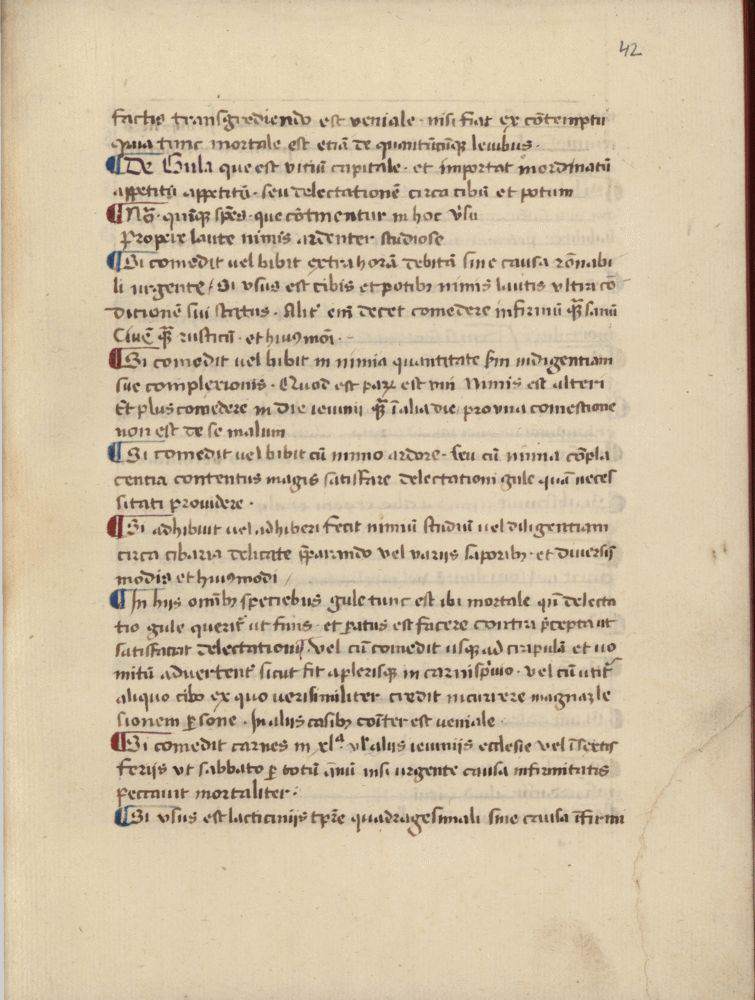 42
factis transgrediendo est veniale · nisi fiat ex cōtemptu
quia tunc mortale est etiā de quantūcūqꝫ leuibus ·
¶ De Gula que est vitiū capitale · et importat inordinatū
appetitū appetitū · seu delectationē circa cibū et potum
¶ Nō · quīqꝫ spēs · que cōtinentur in hoc v̓su
Propere laute nimis ardenter studiose
¶ Si comedit uel bibit extra horā debitā sine causa rōnabi
li urgente / Si vsus est cibis et potibꝫ nimis lautis vltra cō
dicionē sui status · Alit̓ em̄ decet comedere infirmū qꝫ̄ sanū
Ciuē qꝫ̄ rusticū · et huiꝰmōi · –
¶ Si comedit uel bibit in nimia quantitate sm̄ indigentiam
sue complexionis · Quod est paꝝ est vni Nimis est alteri
Et plus comedere in die ieiunii qꝫ̄ ī alia die pro vna comestione
non est de se malum
¶ Si comedit uel bibit cū nimio ardore · seu cū nimia cōpla
centia contentus magis satisfare delectationi gule quā neces
sitati prouidere ·
¶ Si adhibuit uel adhiberi fecit nimiū studiū uel diligentiam
circa cibaria delicate p̄parando vel variis saporibꝫ · et diuersis
modis et huiꝰmodi /
¶ In hiis omībꝫ speciebus gule tunc est ibi mortale qn̄ delecta
tio gule querit̓ ut finis · et ꝑatus est facere contra p̄cepta ut
satisfaciat delectationi / vel cū comedit usqꝫ ad crapulā et uo
mitū aduertent̓ sicut fit a plerisqꝫ in carnisp̓uio · vel cū utit̓
aliquo cibo ex quo uerisimiliter credit incurrere magnaꝫ le
sionem ꝑsone · In aliis casibꝫ cōiter est veniale ·
¶ Si comedit carnes in xlᵃ vl̓ aliis ieiuniis ecclesie vel ī sextis
feriis vt sabbato ꝑ totū annū nisi urgente causa infirmitatis
peccauit mortaliter ·
¶ Si vsus est lacticiniis tp̄re quadragesimali sine causa īfirmi